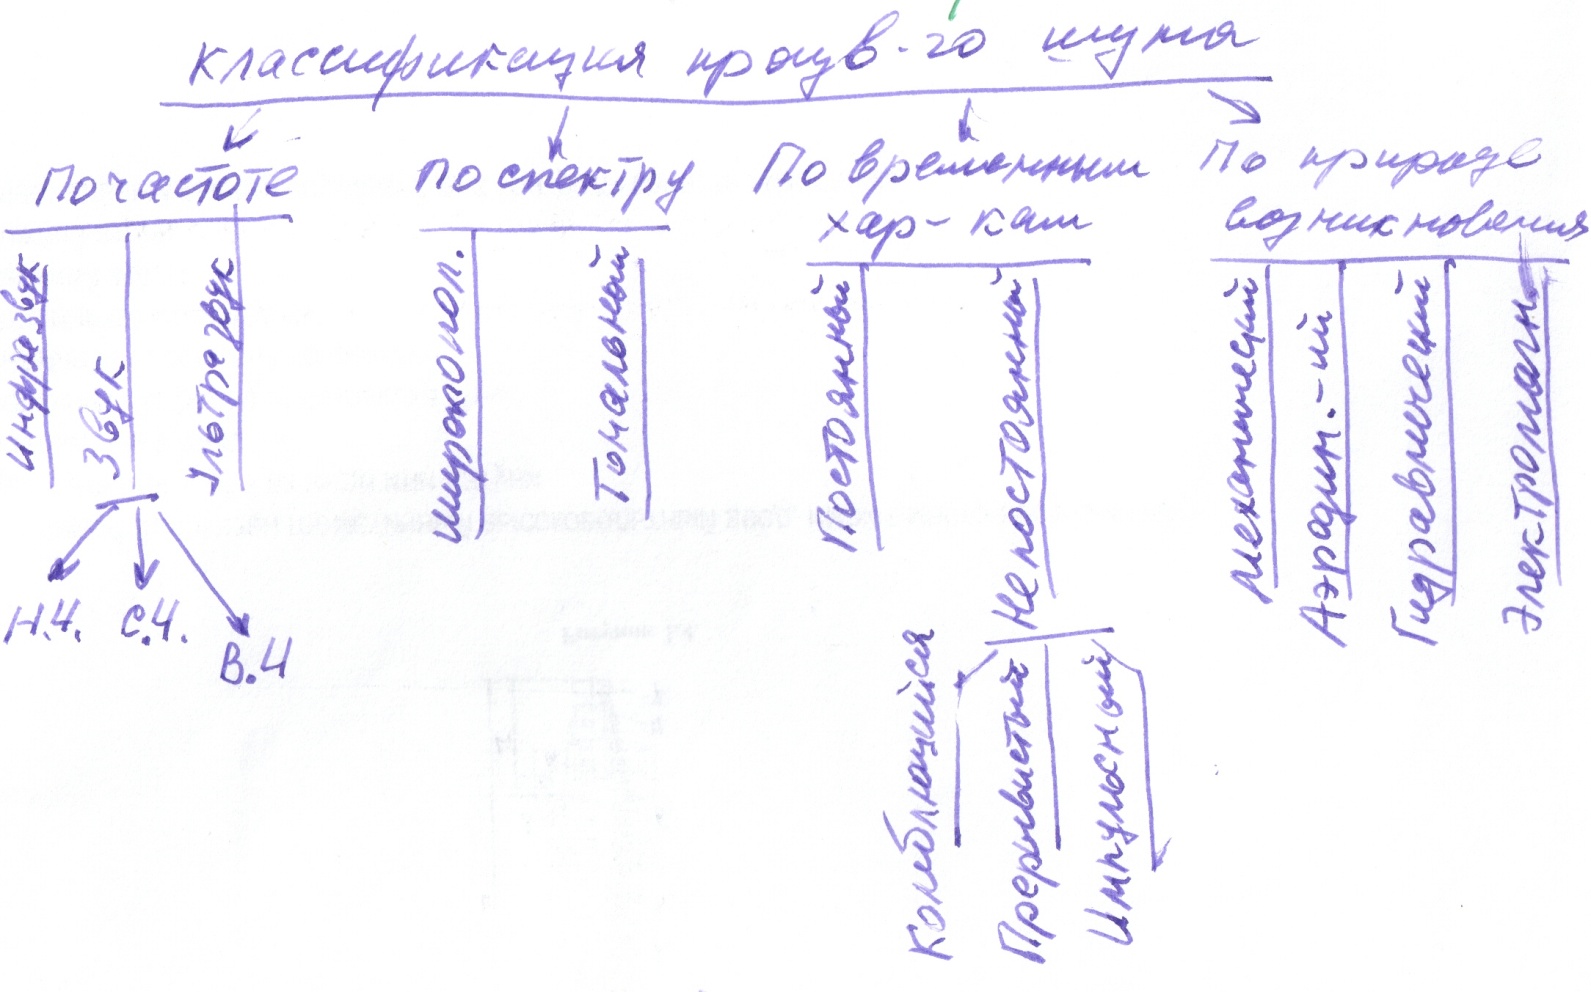 классификация произв-го шума
По частоте
по спектру
По временным
хар-кам
По природе
возникновения
инфразвук
Звук
Ультразвук
Н.Ч.
С.Ч.
В.Ч
широкопол.
Тональный
Постоянный
Непостоянный
Колеблющийся
Прерывистый
Импульсный
Механический
Аэродин.-ий
Гидравлический
Электромагн.